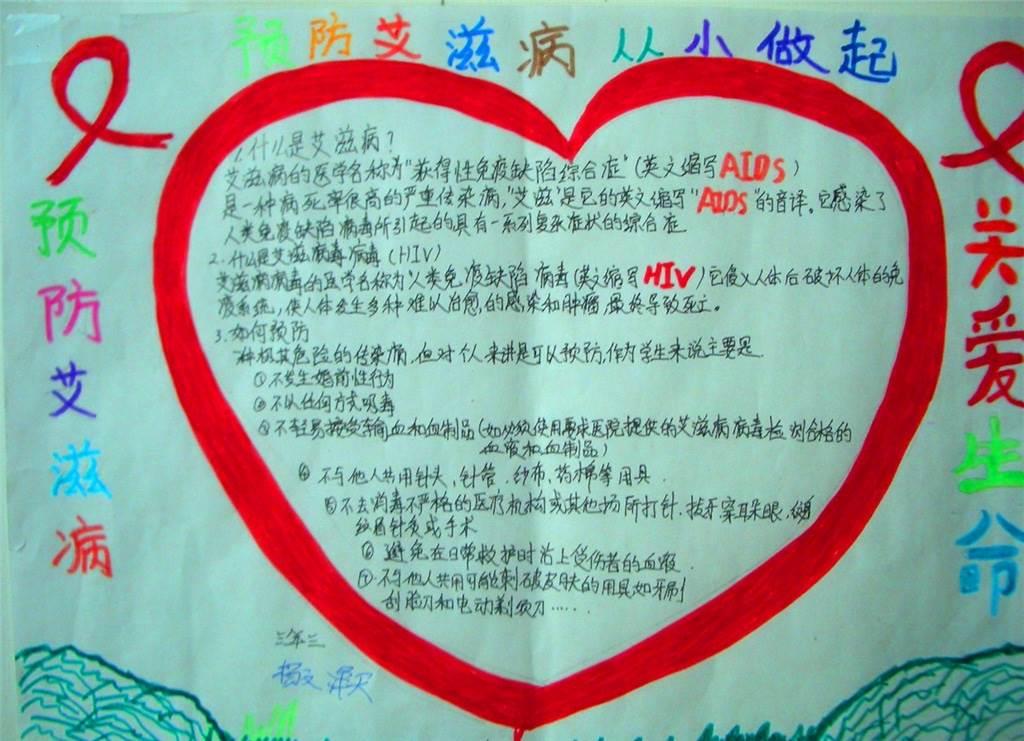 预防艾滋病 从小做起
预防艾滋病
关爱生命
1.什么是艾滋病?
艾滋病的医学名称为"获得性免疫缺陷综合症"(英文缩写AIDS)
是一种病死率很高的严重传染病,"艾滋"是它的英文缩写"AIDS"的音译。它感染了
人类免疫缺陷病毒所引起的具有一系列复杂症状的综合症
2.什么是艾滋病毒病毒(HIV)
艾滋病病毒的医学名称为人类免疫缺陷病毒(英文缩写HIV)它侵入人体后破坏人体的免
疫系统,使人体发生多种难以治愈的感染和肿瘤,最终导致死亡。
3.如何预防
种极其危险的传染病,但对个人来讲是可以预防,作为学生来说主要是
①不发生婚前性行为
②不以任何方式吸毒
③不轻易接受输血和血制品(如必须使用要求医院提供的艾滋病病毒检测合格的
血液和血制品)
④不与他人共用针头、针管、纱布、药棉等用具
⑤不去消毒不严格的医疗机构或其他场所打针、拔牙穿耳朵眼、
针灸或手术
⑥避免在日常救护时沾上受伤者的血液
⑦不与他人共用可能刺破皮肤的用具如牙刷
刮脸刀和电动剃须刀……
三年三